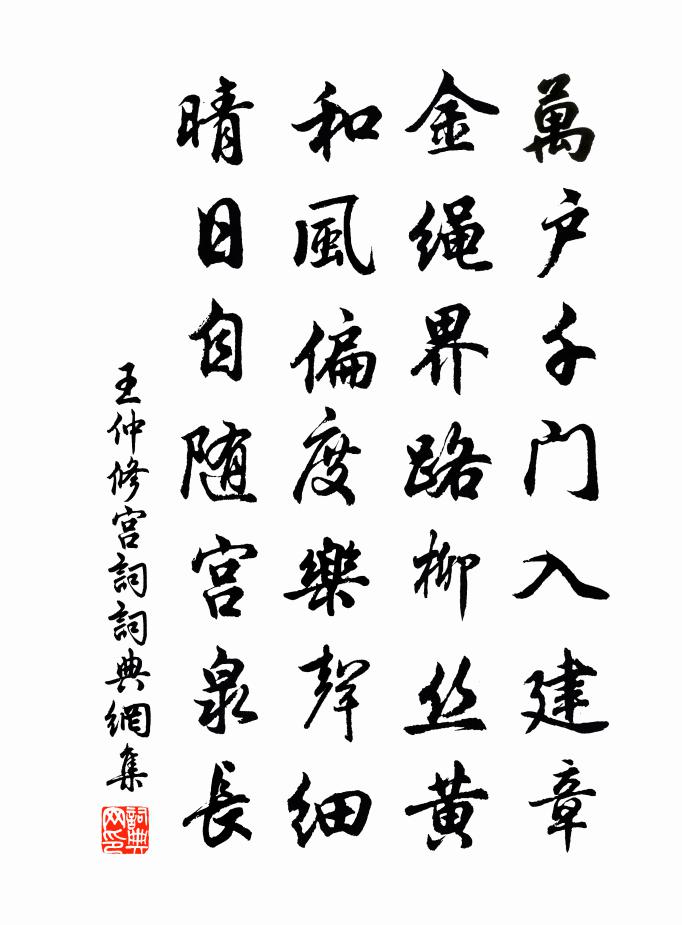 萬户千门入建章
金绳界路柳丝黄
和風偏度樂聲细
晴日自随宫泉長
王仲修宫詞詞典網集
詞典网印